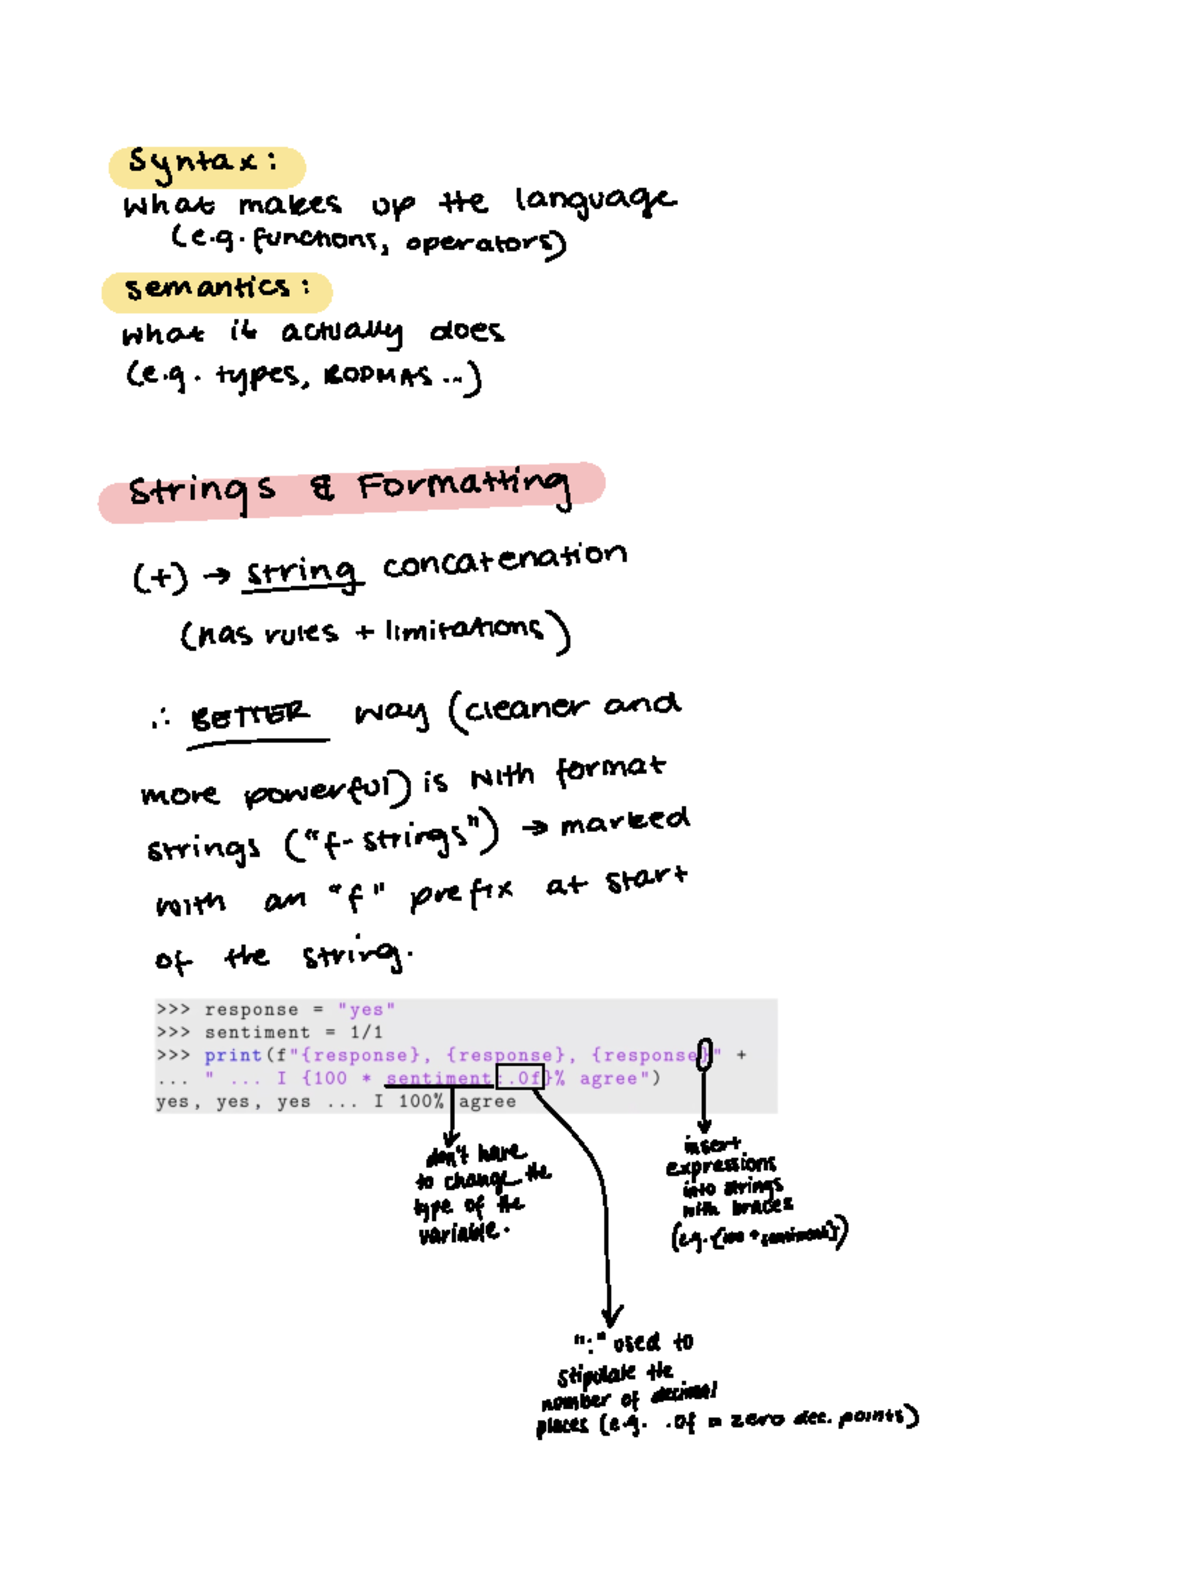 Syntax:
What makes up the language
(e.g. functions, operators)
semantics:
what it actually does
(e.g. types, BODMAS ...)
Strings & Formatting
(+) → string concatenation
(has rules + limitations)
∴ BETTER way (cleaner and
more powerful) is with format
strings ("f-strings") → marked
with an "f" prefix at start
of the string.
>>> response = "yes"
>>> sentiment = 1/1
>>> print(f"{response}, {response}, {response}" +
... " ... I {100 * sentiment:.0f}% agree")
yes, yes, yes ... I 100% agree
don't have
to change the
type of the
variable.
insert
expressions
into strings
with braces
(e.g. {100 * sentiment})
":" used to
stipulate the
number of decimal
places (e.g. .0f = zero dec. points)